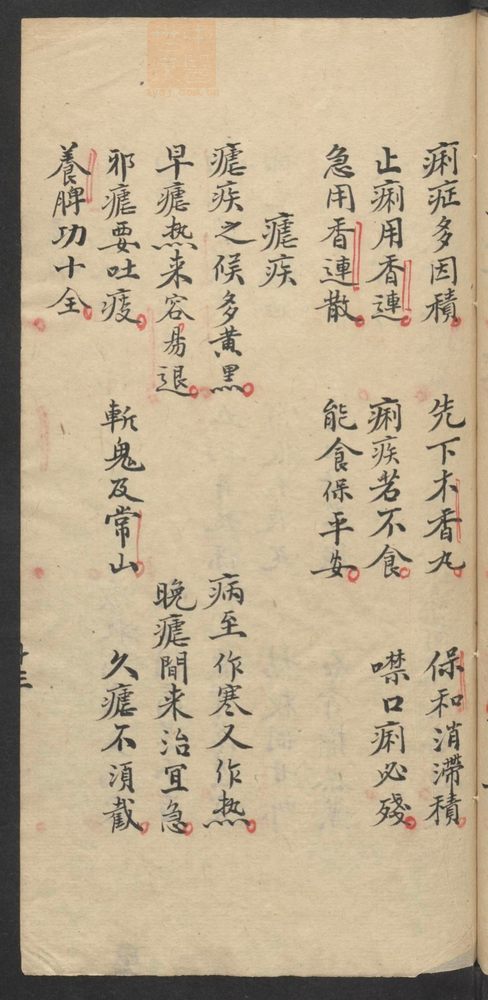 痢症多因積 先下木香丸 保和消滯積
止痢用香連 痢疾若不食 噤口痢必殘
急用香連散 能食保平安
瘧疾
瘧疾之候多黃黑 病至作寒又作热
早瘧热来容易退 晚瘧間来治宜急
邪瘧要吐疫 斬鬼及常山 久瘧不須截
養脾功十全
十三